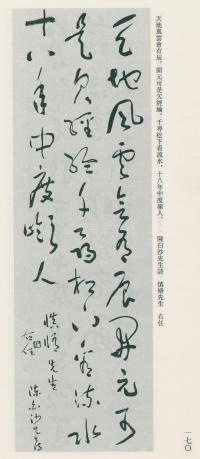 天地風雲會有辰，開元可是欠經綸，千尋松下看流水，十八年中度嶺人。 陳白沙先生詩 慎先生 右任
天地風雲會有辰開元可
是欠經綸千尋松下看流水
十八年中度嶺人
陳白沙先生詩
慎先生
右任
一七〇